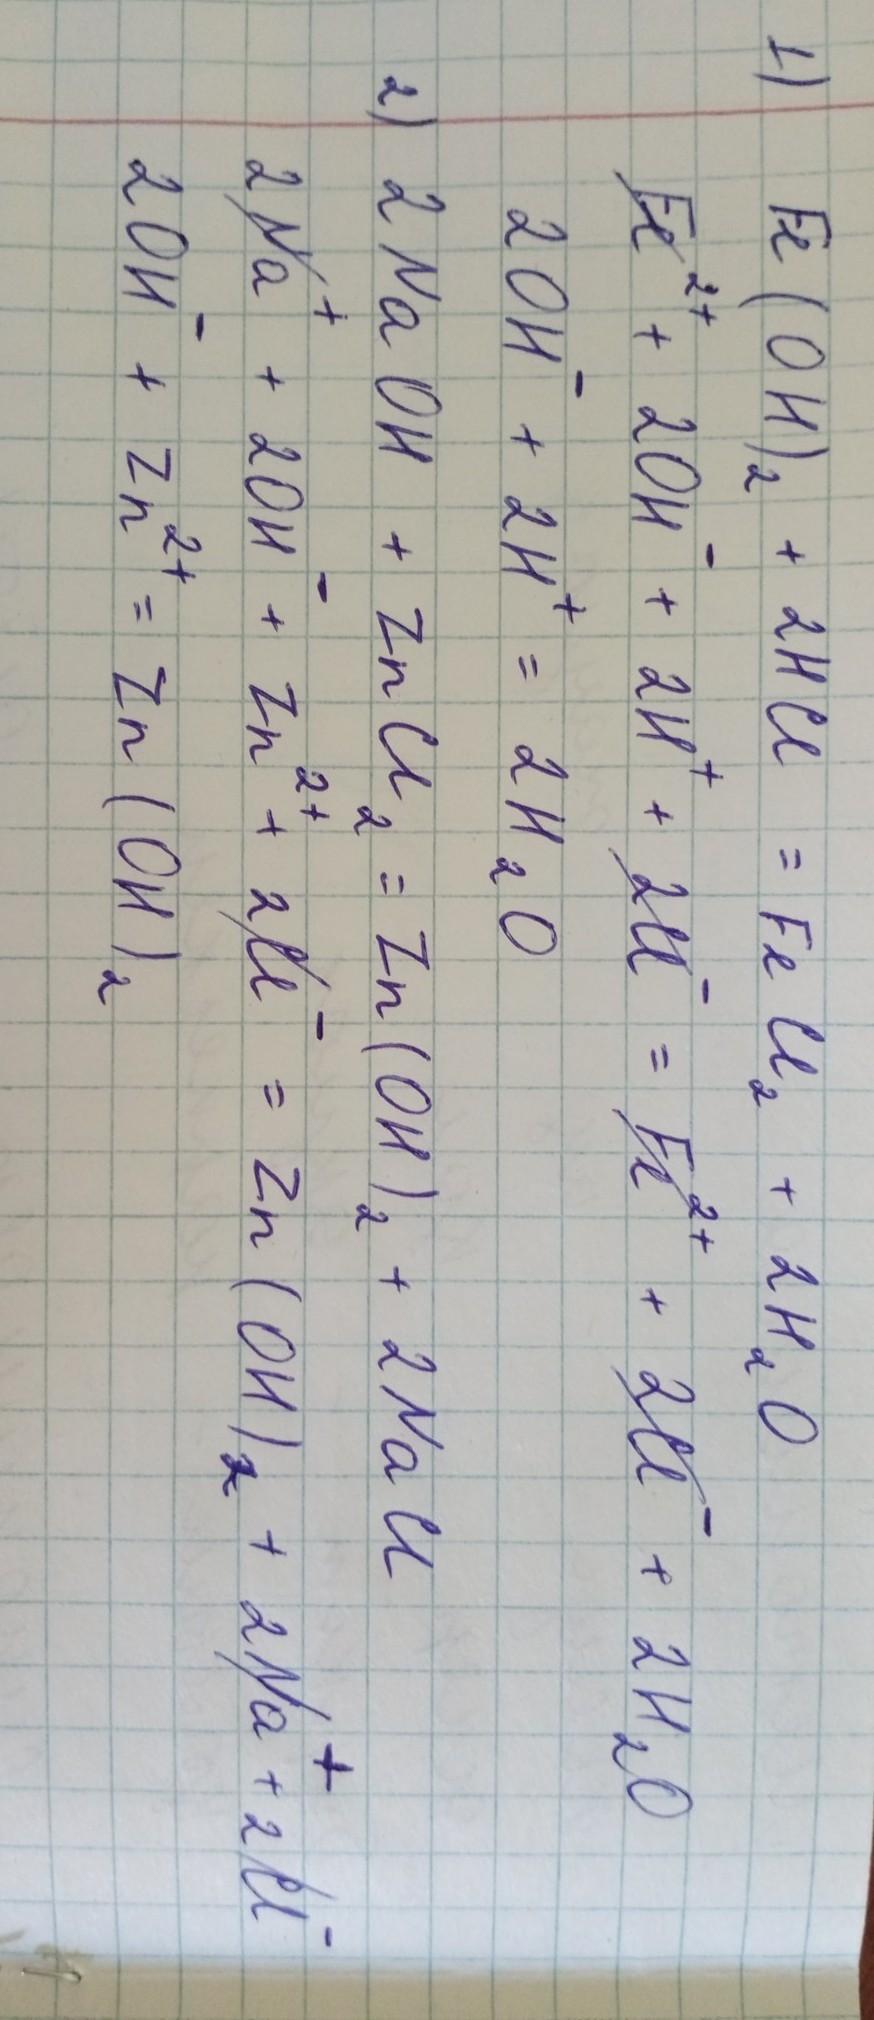 1) Fe(OH)₂ + 2HCl = FeCl₂ + 2H₂O
Fe²⁺ + 2OH⁻ + 2H⁺ + 2Cl⁻ = Fe²⁺ + 2Cl⁻ + 2H₂O
2OH⁻ + 2H⁺ = 2H₂O
2) 2NaOH + ZnCl₂ = Zn(OH)₂ + 2NaCl
2Na⁺ + 2OH⁻ + Zn²⁺ + 2Cl⁻ = Zn(OH)₂ + 2Na⁺ + 2Cl⁻
2OH⁻ + Zn²⁺ = Zn(OH)₂